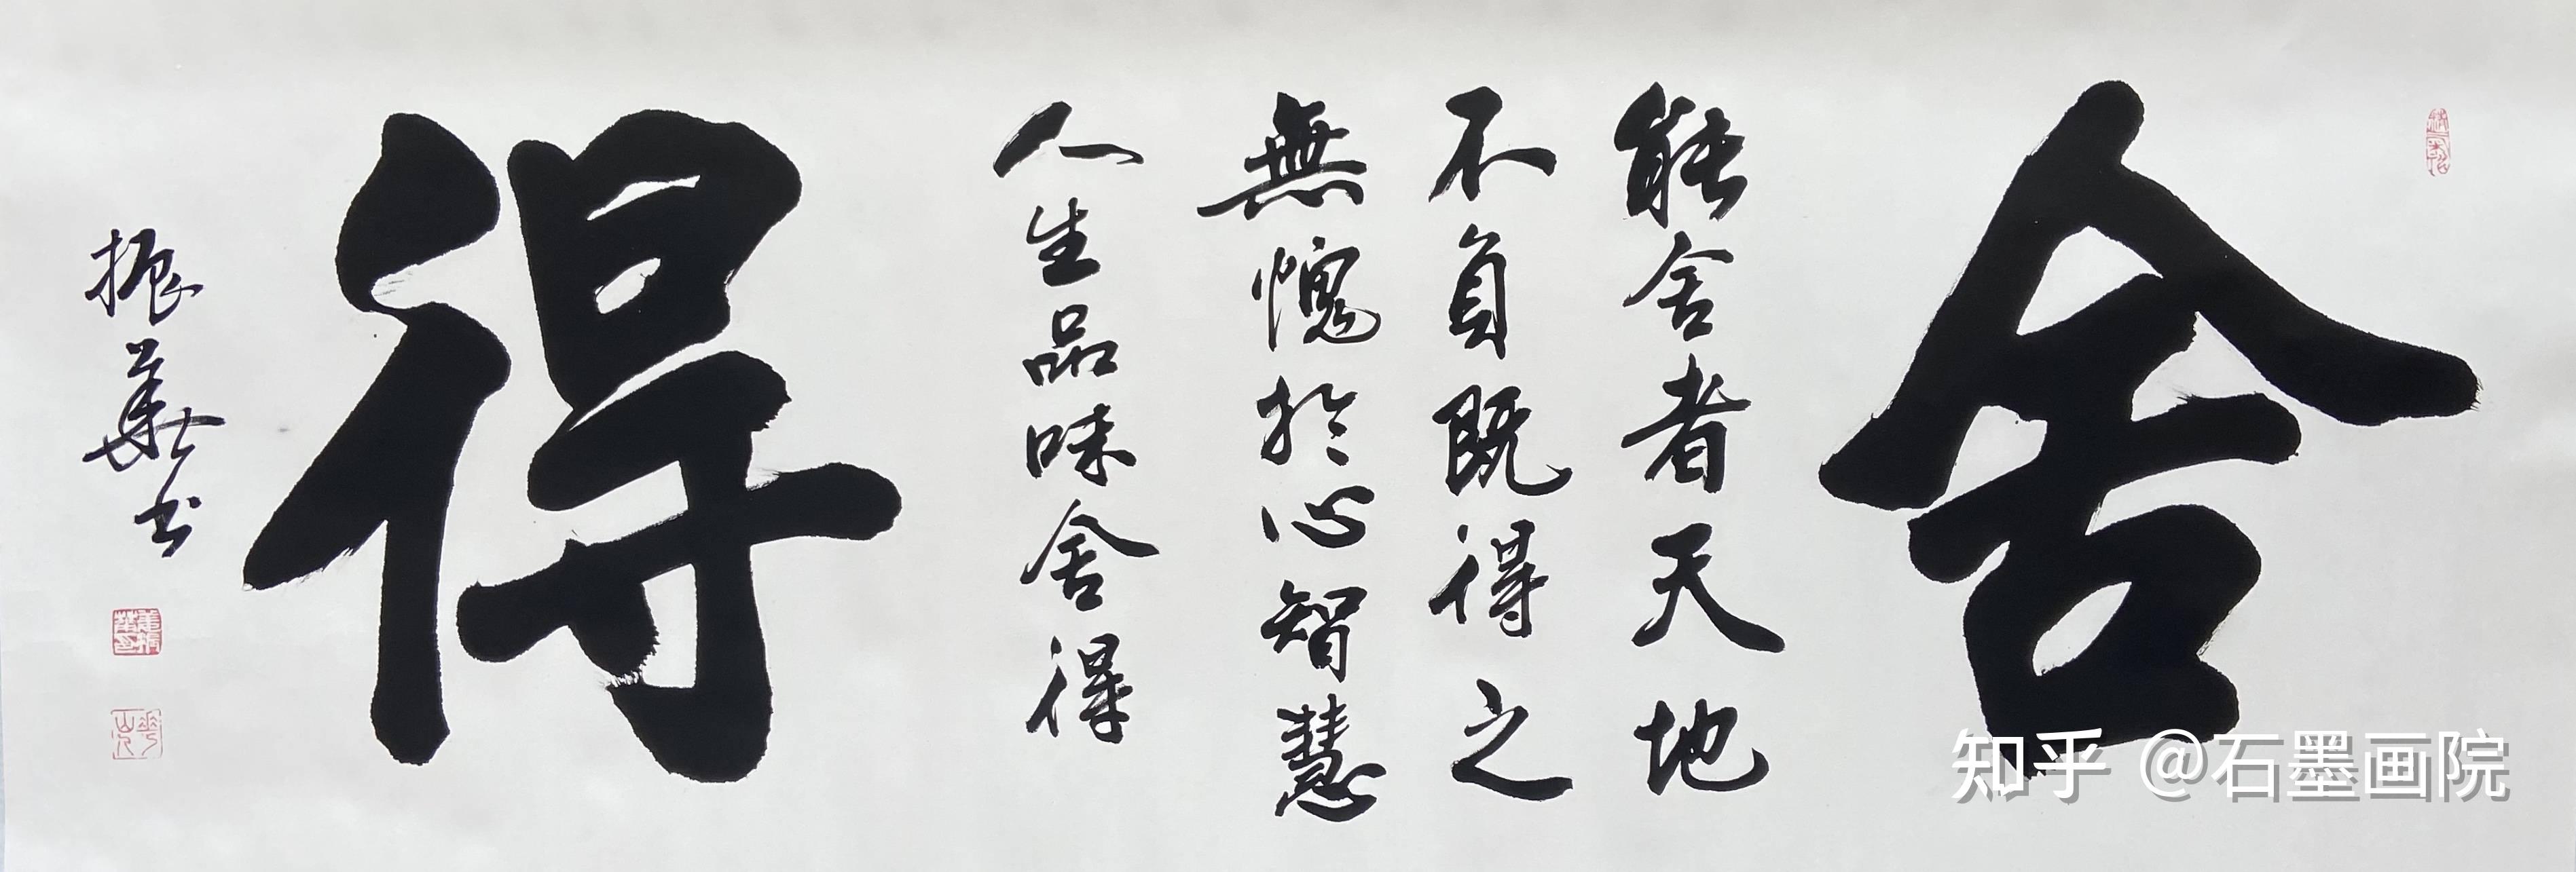 舍
能舍者天地
不負既得之
無愧於心智慧
人生品味舍得
得
振華书
知乎 @石墨画院